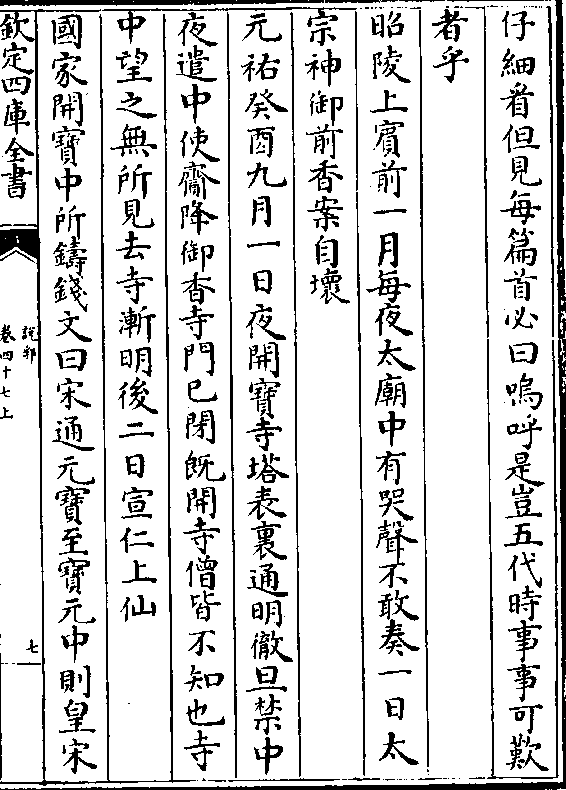 仔細看但見每篇首必曰嗚呼是豈五代時事事可歎
者乎
昭陵上賓前一月每夜太廟中有哭聲不敢奏一日太
宗神御前香案自壞
元祐癸酉九月一日夜開寶寺塔表裏通明徹旦禁中
夜遣中使齎降御香寺門已閉既開寺僧皆不知也寺
中望之無所見去寺漸明後二日宣仁上仙
國家開寶中所鑄錢文曰宋通元寶至寶元中則皇宋
欽定四庫全書
說郛
卷四十七上
七